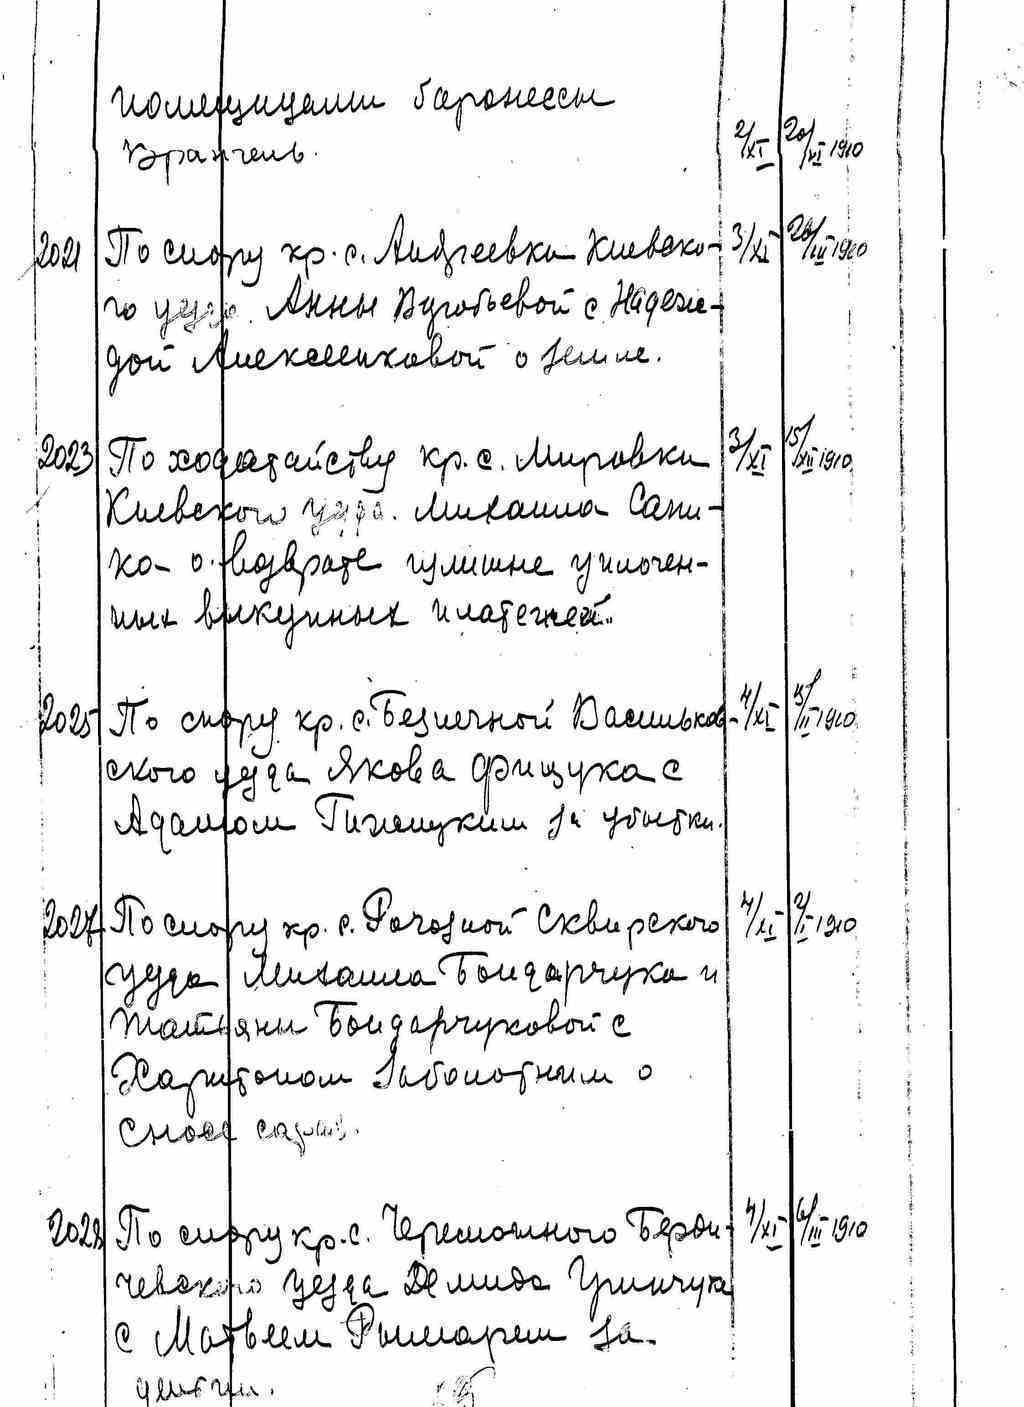 помещицами баронессы
Врангель. 2/XI 20/VI 1910
2021 По спору кр. с. Андреевка Киевско- 3/XI 20/III 1910
го уезда Анны Воробьевой с Надеж-
дой Алексеиковой о земле.
2023 По ходатайству кр. с. Мировки 3/XI 15/XII 1910
Киевского уезда. Михаила Сапи-
ко о возврате излишне уплочен-
ных выкупных платежей.
2025 По спору кр. с. Безпечной Васильков- 4/XI 1910
ского уезда Якова Фищука с
Адамом за убытки.
2027 По спору кр. с. Рогозной Сквирского 4/XI 2/II 1910
уезда Михаила Бондарчука и
Татьяны Бондарчуковой с
Харитоном Заболотным о
сносе сарая.
2028 По спору кр. с. Черемошного Берди- 4/XI 6/III 1910
чевского уезда Демида Гринчука
с Матвеем Рымарем за
деньги.